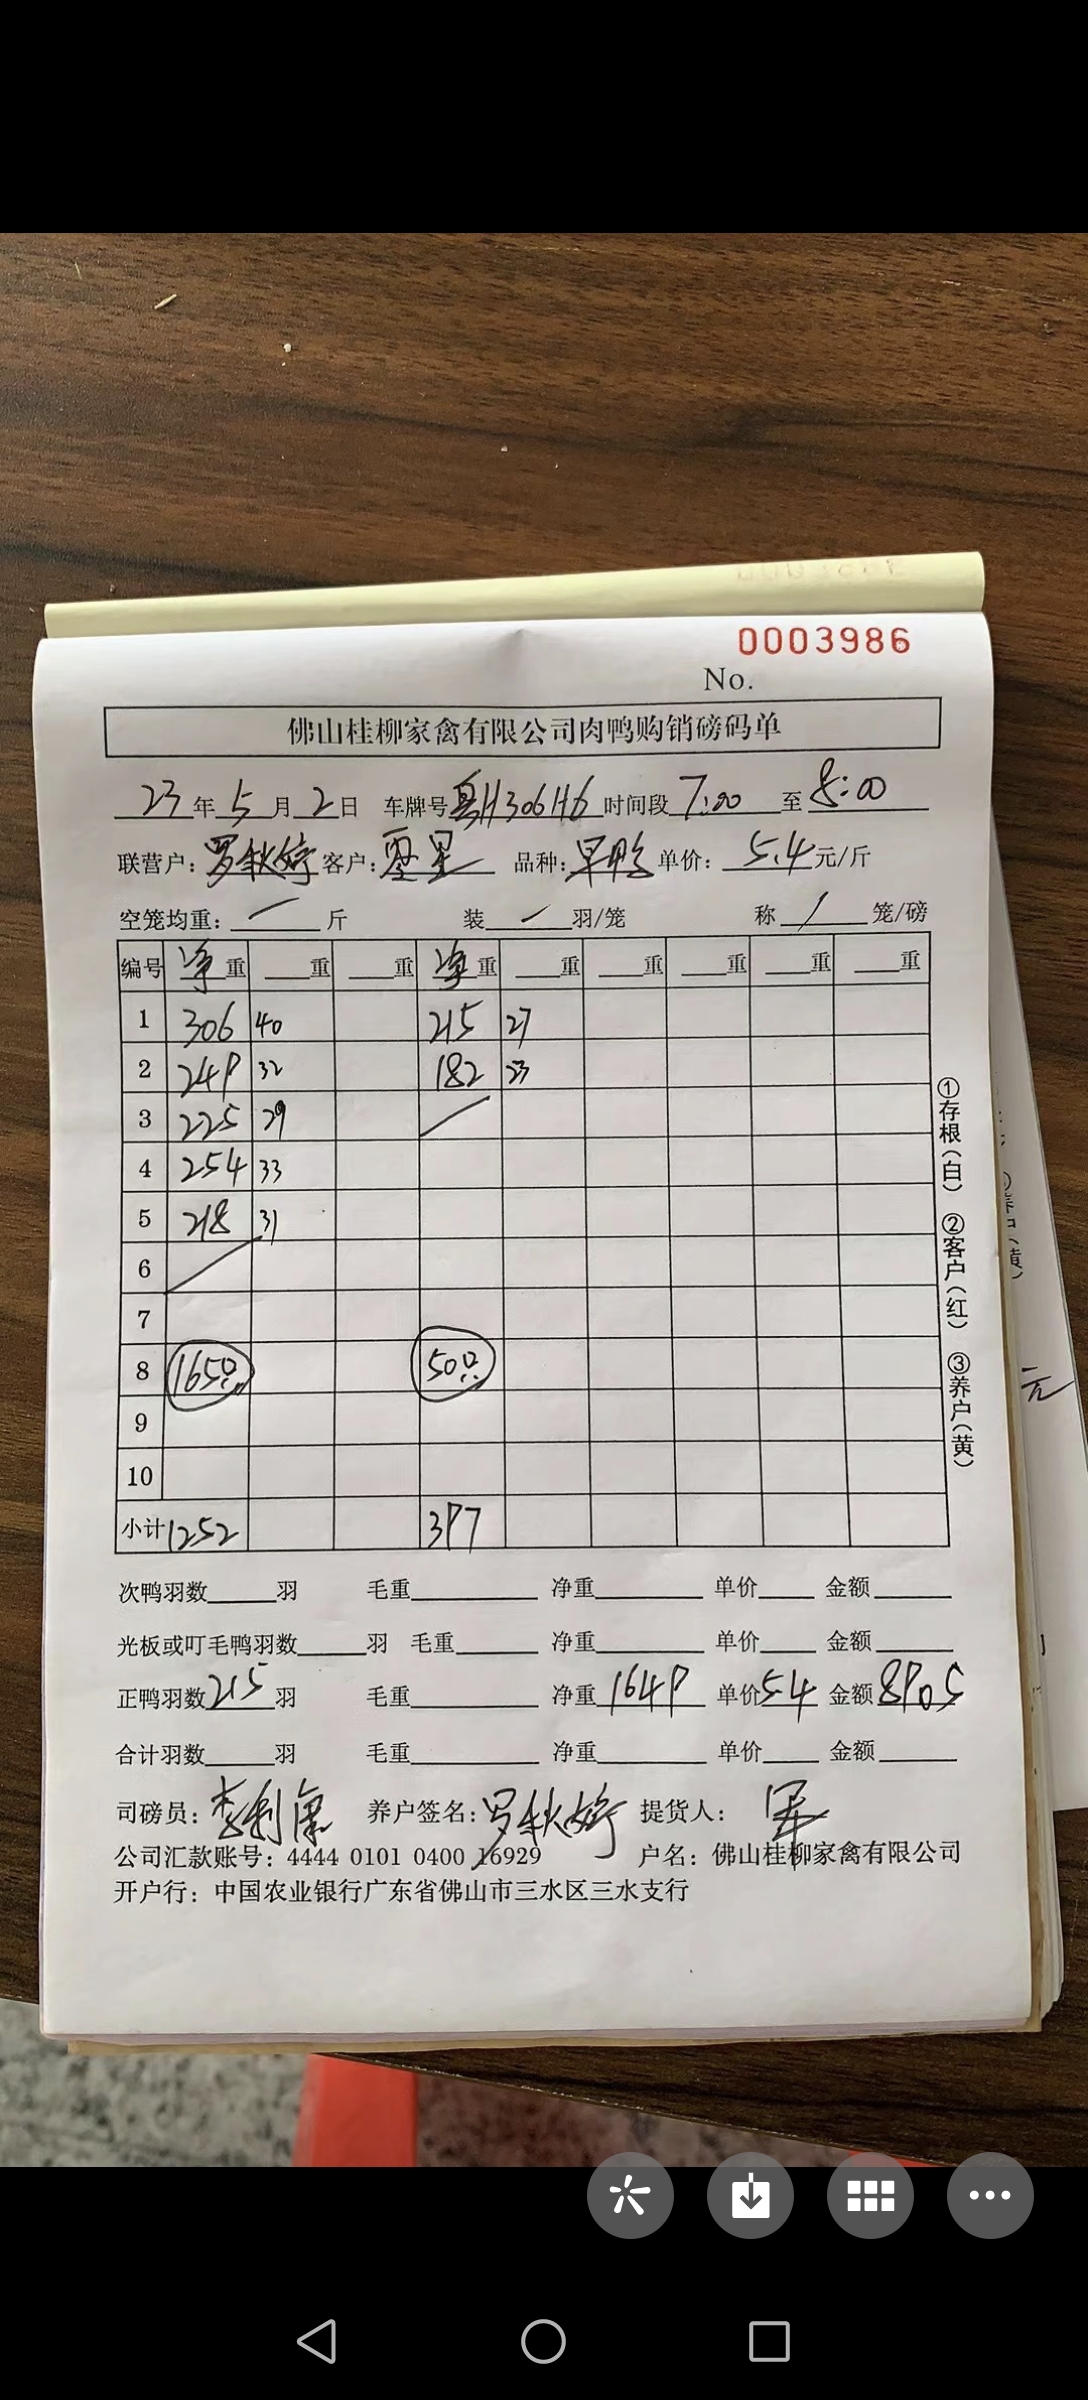 0003986
No.
佛山桂柳家禽有限公司肉鸭购销磅码单
23年5月2日 车牌号粤H306H6时间段7:00至8:00
联营户:罗秋婷客户:零星 品种:旱鸭单价:5.4元/斤
空笼均重:/斤 装/羽/笼 称/笼/磅
编号 净重 重 重 净重 重 重 重 重 重
1 306 40 215 27
2 249 32 182 23
3 225 29
4 254 33
5 218 31
6
7
8 165只 50只
9
10
小计 1252 397
①存根(白) ②客户(红) ③养户(黄)
次鸭羽数 羽 毛重 净重 单价 金额
光板或叮毛鸭羽数 羽 毛重 净重 单价 金额
正鸭羽数215羽 毛重 净重1649 单价5.4 金额8905
合计羽数 羽 毛重 净重 单价 金额
司磅员:李利 养户签名:罗秋婷 提货人:
公司汇款账号:4444 0101 0400 16929 户名:佛山桂柳家禽有限公司
开户行:中国农业银行广东省佛山市三水区三水支行
元